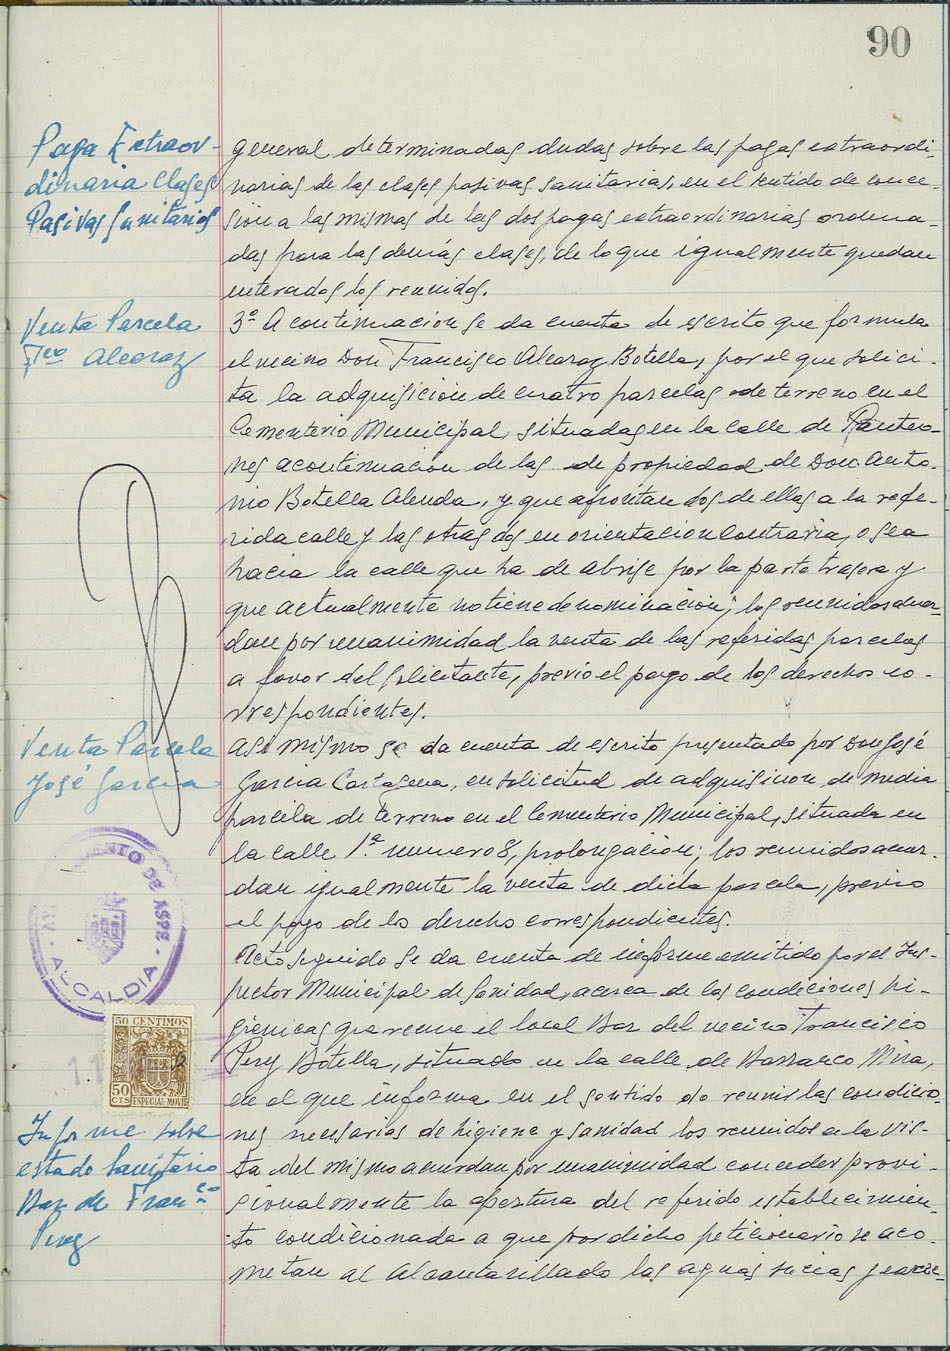 90
Paga Extraor-
dinaria Clases
Pasivas Sanitarios
general determinadas dudas sobre las pagas extraordi-
narias de las clases pasivas sanitarias, en el sentido de conce-
sion a las mismas de las dos pagas extraordinarias ordena-
das para las demás clases, de lo que igualmente quedan
enterados los reunidos.
Venta Parcela
Fco Alcaraz
3º A continuacion se da cuenta de escrito que formula
el vecino Don Francisco Alcaraz Botella, por el que solici-
ta la adquisición de cuatro parcelas de terreno en el
Cementerio Municipal, situadas en la calle de Panteo-
nes a continuación de las de propiedad de Don Anto-
nio Botella Alenda, y que afrontan dos de ellas a la refe-
rida calle y las otras dos en orientacion contraria, o sea
hacia la calle que ha de abrise por la parte trasera y
que actualmente no tiene denominación; los reunidos acuer-
dan por unanimidad la venta de las referidas parcelas
a favor del solicitante, previo el pago de los derechos co-
rrespondientes.
Venta Parcela
José García
Asi mismo se da cuenta de escrito presentado por Don José
García Cartagena, en solicitud de adquisicion de media
parcela de terreno en el Cementerio Municipal, situada en
la calle 1ª numero 8, prolongación; los reunidos acuer-
dan igualmente la venta de dicha parcela, previo
el pago de los derecho correspondientes.
AYUNTAMIENTO DE ASPE
ALCALDIA
50 CENTIMOS
50
CTS ESPECIAL MOVIL
Informe sobre
estado Sanitario
Bar de Franco
Perez
Acto seguido se da cuenta de informe emitido por el Ins-
pector Municipal de Sanidad, acerca de las condiciones hi-
gienicas que reune el local Bar del vecino Francisco
Perez Botella, situado en la calle de Barranco Mira,
en el que informa en el sentido de reunir las condicio-
nes necesarias de higiene y sanidad los reunidos a la vis-
ta del mismo acuerdan por unanimidad conceder provi-
sionalmente la apertura del referido establecimien-
to condicionada a que por dicho peticionario se aco-
metan al Alcantarillado las aguas sucias y